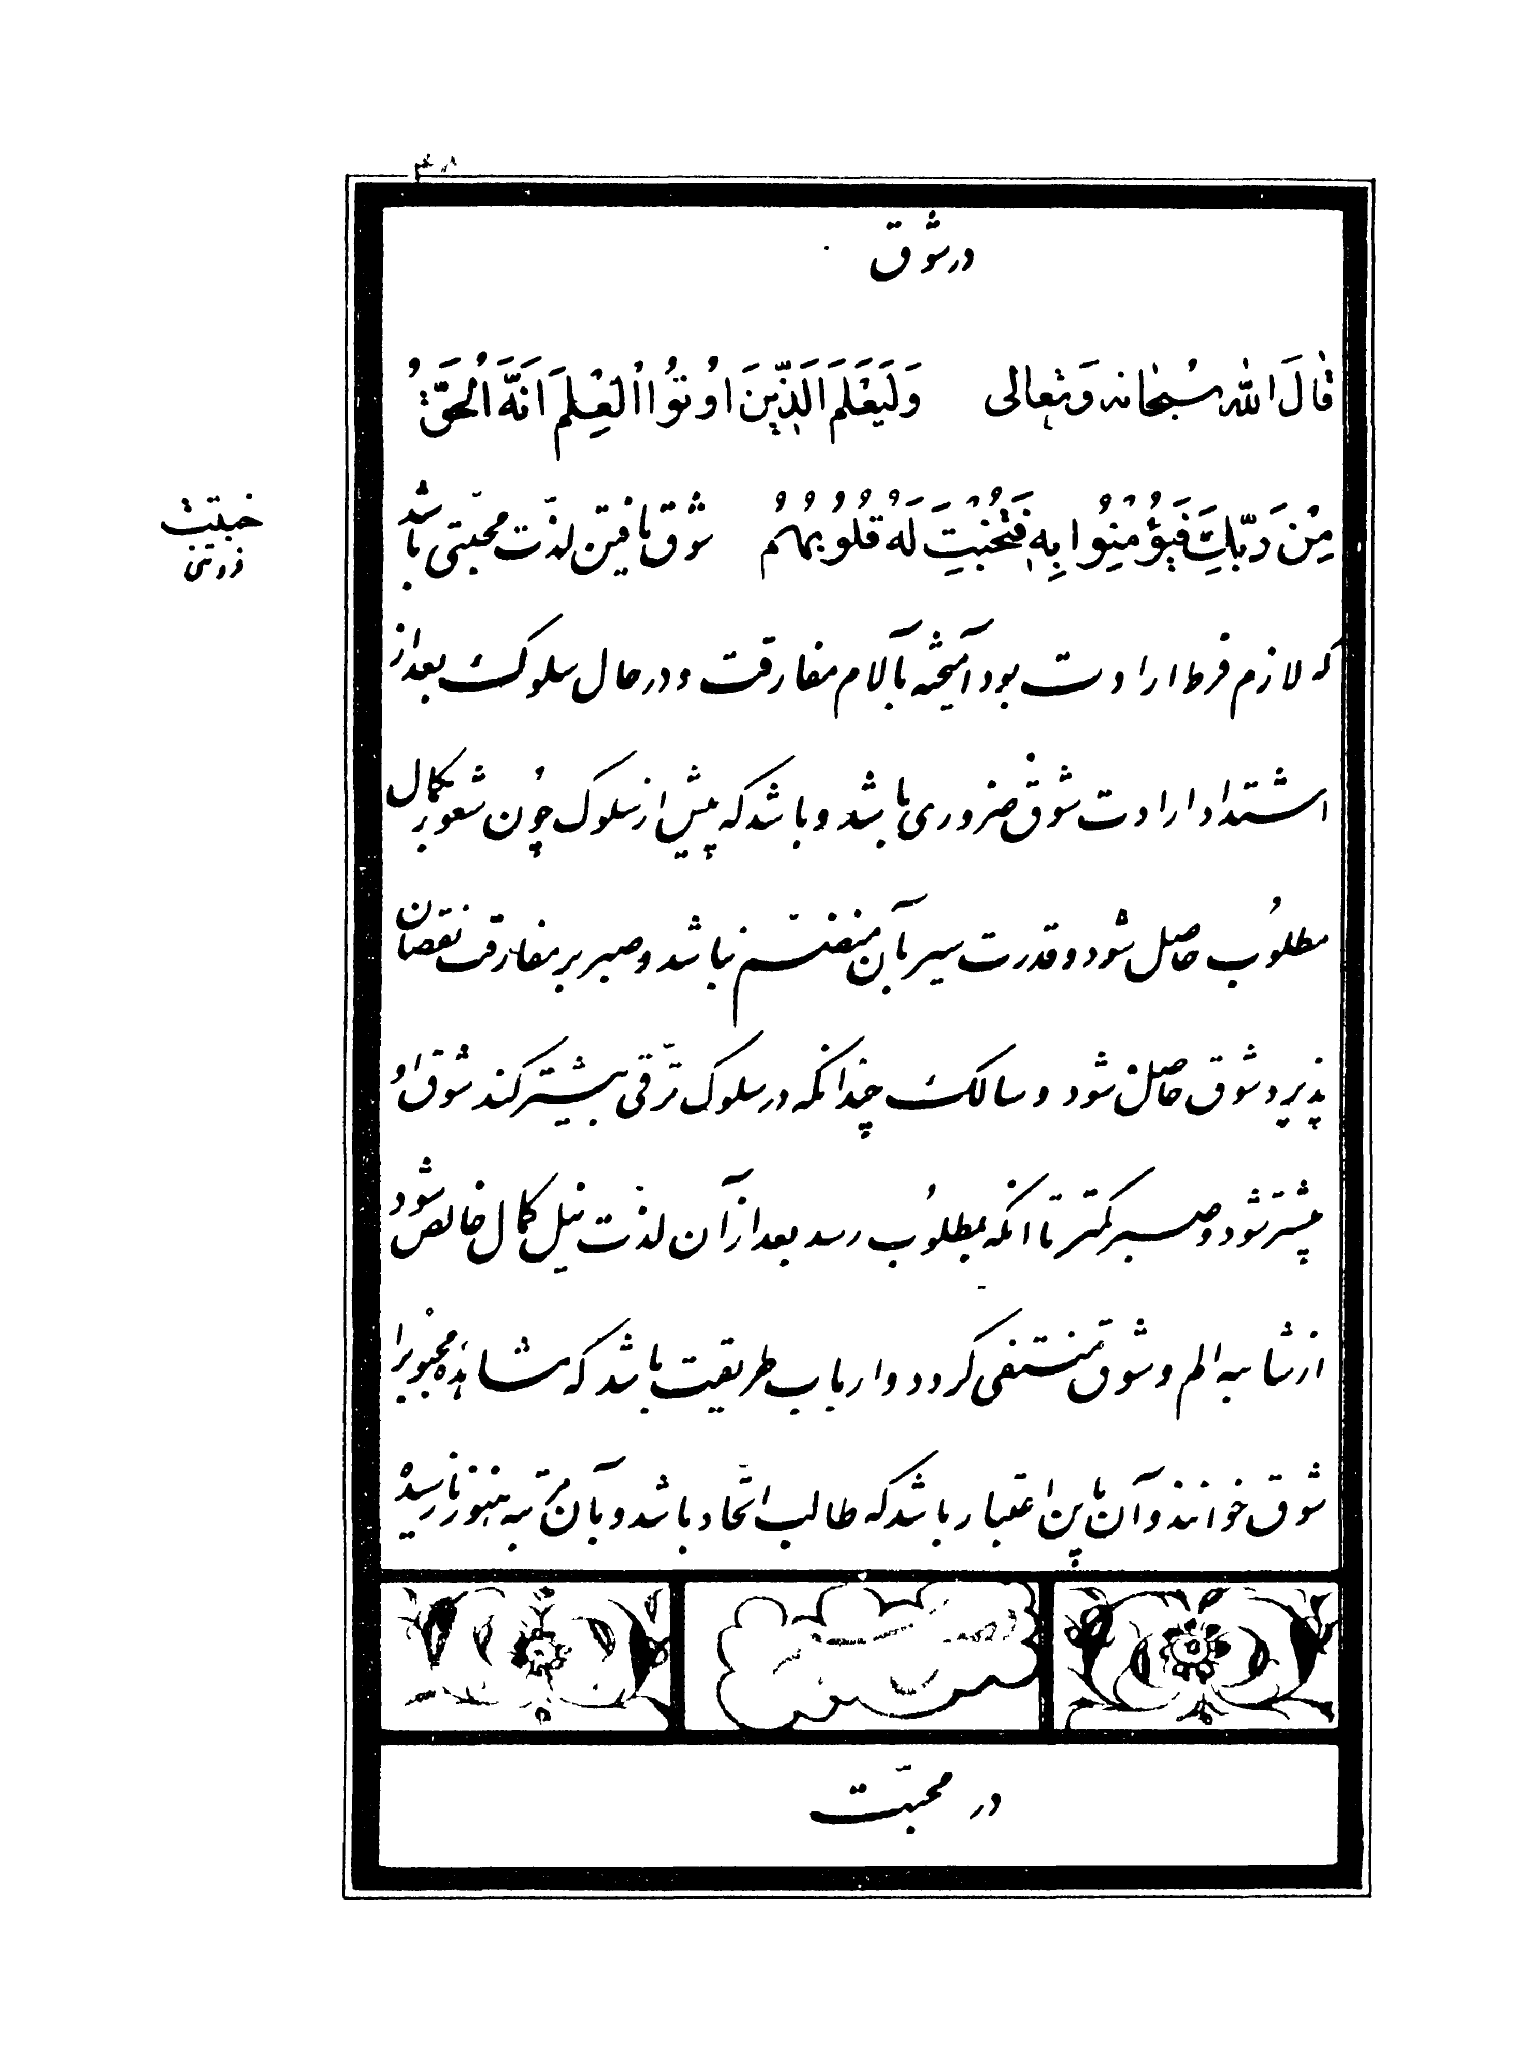 ۴۸
در شوق
قالَ اللهُ سُبحانه وَتعالى وَلَیَعْلَمَ الَّذینَ اُوتُوا الْعِلْمَ اَنَّهُ الْحَقُّ
مِنْ رَبِّكَ فَیُؤْمِنُوا بِهِ فَتُخْبِتَ لَهُ قُلُوبُهُمْ شوق یافتن لذّت محبّتی باشد
که لازم فرط ارادت بود آمیخته بآلام مفارقت و در حال سلوک بعد از
اشتداد ارادت شوق ضروری باشد و باشد که پیش از سلوک چون شعور بکمال
مطلوب حاصل شود و قدرت سیر بآن منضمّ نباشد و صبر بر مفارقت نقصان
پذیرد شوق حاصل شود و سالک چندانکه در سلوک ترّقی بیشتر کند شوق او
بیشتر شود و صبر کمتر تا آنکه بمطلوب رسد بعد از آن لذّت نیل کمال خالص شود
از شایبه الم و شوق منتفی گردد و ارباب طریقت باشد که مشاهده محبوب را
شوق خوانند و آن باین اعتبار باشد که طالب اتّحاد باشد و بآن مرتبه هنوز نارسیده
در محبّت
خبتت
فروتنی